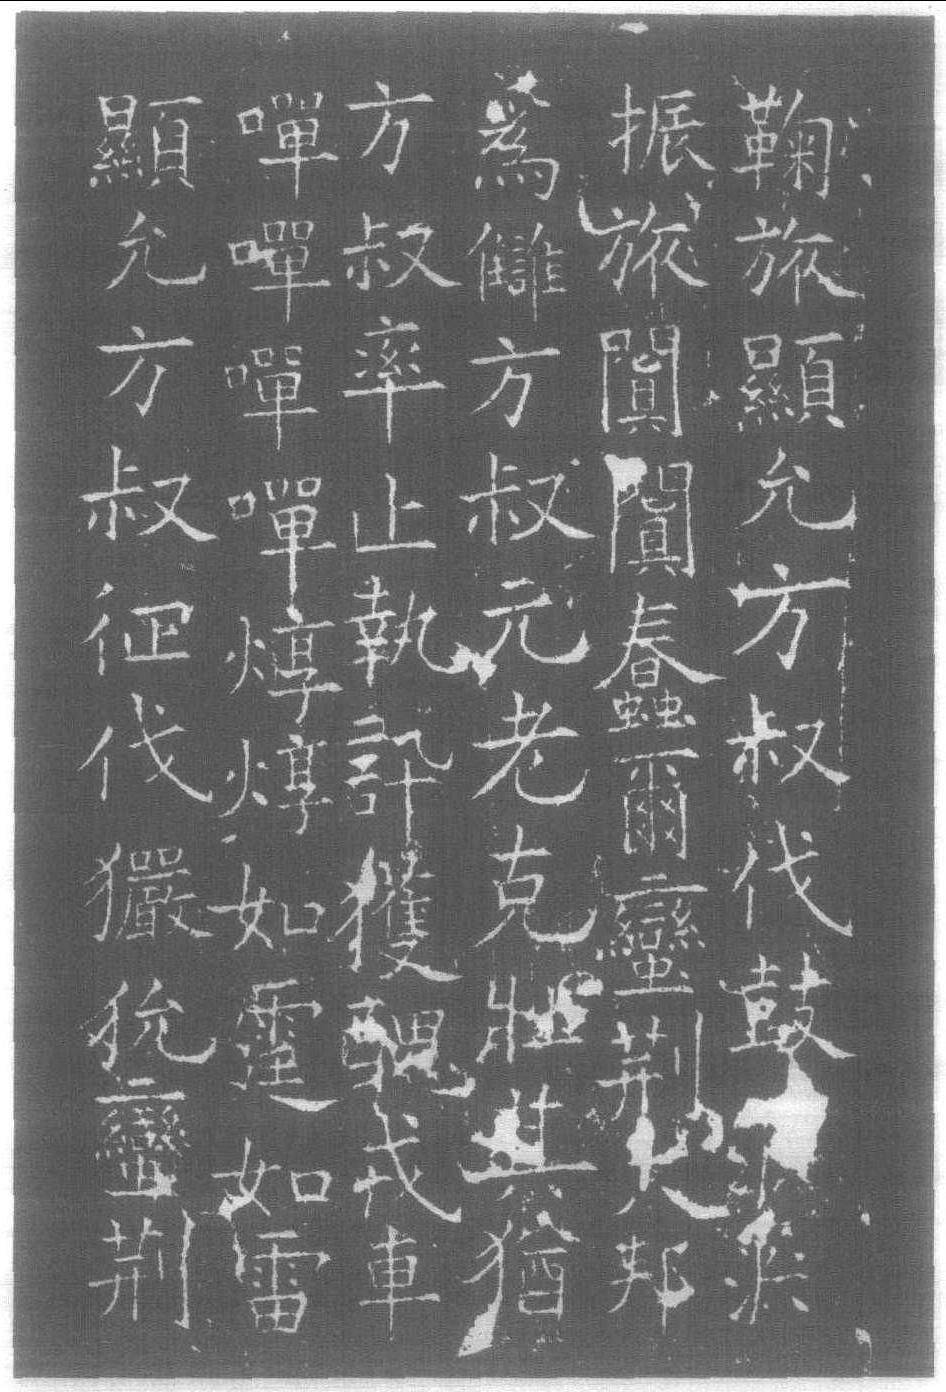 鞠旅顯允方叔伐鼓
振旅闐闐蠢爾蠻荆大邦
爲讎方叔元老克壯其猶
方叔率止執訊獲醜戎車
嘽嘽嘽嘽焞焞如霆如雷
顯允方叔征伐玁狁蠻荆